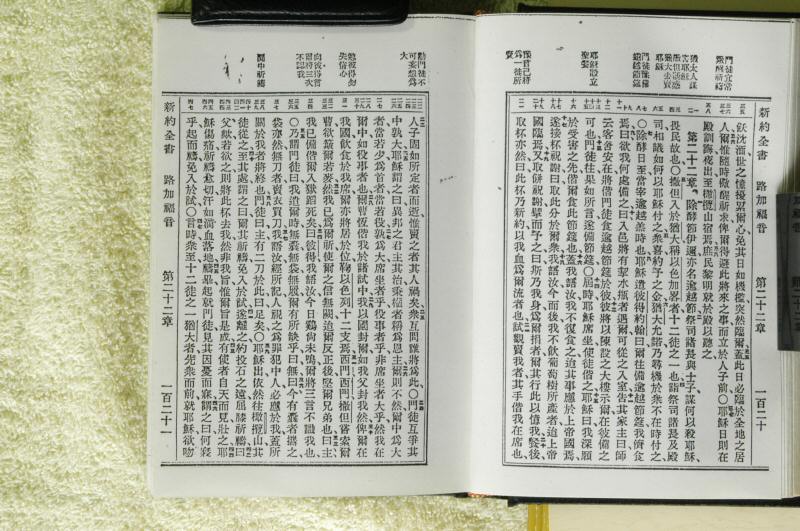 新約全書　路加福音　第二十二章　一百二十
飲沈湎世之憧擾累爾心免其日如機檻突然臨爾蓋此日必臨於全地之居
人爾惟隨時儆醒祈求俾爾得避此將來之事而立於人子前〇耶穌日則在
殿訓誨夜出至橄欖山宿焉庶民黎明就於殿以聽之
第二十二章　除酵節伊邇亦名逾越節祭司諸長與士子謀何以殺耶穌
畏民故也〇撒但入於猶大稱以色加畧者十二徒之一也詣祭司諸長及殿
司相議如何以耶穌付之衆喜約予之金猶大允諾乃尋機於衆不在時付之
〇除酵日至當宰逾越羔時也耶穌遣彼得約翰曰爾往備逾越節筵我儕食
焉曰欲我何處備之曰入邑將有挈水瓶者遇爾可從之入室告其家主曰師
云客舍安在將偕門徒食逾越節筵於彼彼將以陳設之大樓示爾在彼備之
可也門徒往果如所言遂備節筵〇屆時耶穌席坐使徒偕之耶穌曰我深願
於受害之先偕爾食此節筵也蓋我語汝我不復食之迨其事應於上帝國焉
遂接杯祝謝曰取此分於爾衆我語汝今而後我不飲葡萄樹所產者迨上帝
國臨焉又取餅祝謝擘而予之曰斯乃我身爲爾捐者爾其行此以憶我餐後
取杯亦然曰此杯乃新約以我血爲爾流者也試觀賣我者其手偕我在席也
門徒宜常儆醒祈禱
猶大人謀害耶穌
撒但誘惑猶大賣耶穌
門徒豫備逾越節筵
耶穌設立聖餐
豫言己將爲一徒所賣
人子固如所定者而逝惟賣之者其人禍矣衆互問誰將爲此〇門徒互爭其
中孰大耶穌謂之曰異邦之君主其治秉權者稱爲恩主爾則不然爾中爲大
者當若少爲首者當若役孰爲大席坐者乎役事者乎非席坐者大乎然我在
爾中如役事者也爾曹恆偕我於諸試中我以國封爾如我父封我然俾爾在
我國飲食於我席爾亦將居於位鞫以色列十二支焉西門西門撒但嘗索爾
曹欲簸爾若麥然我已爲爾祈使爾之信無闕迨爾反正後堅爾兄弟也曰主
我已備偕爾入獄蹈死矣曰彼得我語汝今日鷄尚未鳴爾將三言不識我也
〇乃謂門徒曰我遣爾時無囊無袋無履爾有所缺乎曰無曰今有囊者攜之
袋亦然無刀者賣衣買刀我語汝經所記人視之爲罪犯中人必應於我蓋所
關於我者將終也門徒曰主有二刀於此曰足矣〇耶穌出依然往橄欖山其
徒從之至其處謂之曰爾其祈禱免入於試遂離之約投石之遠屈膝祈禱曰
父歟若欲之則將此杯去我然非我旨惟爾旨是成有使者自天而見壯之耶
穌傷痛祈禱愈切汗如滴血落地禱畢起就門徒見其因憂而寐謂之曰何寢
乎起而禱免入於試〇言時衆至十二徒之一猶大者先衆而前就耶穌欲吻
新約全書　路加福音　第二十二章　一百二十一
勸門徒不可妄想爲大
彼得三次不認我
園中祈禱